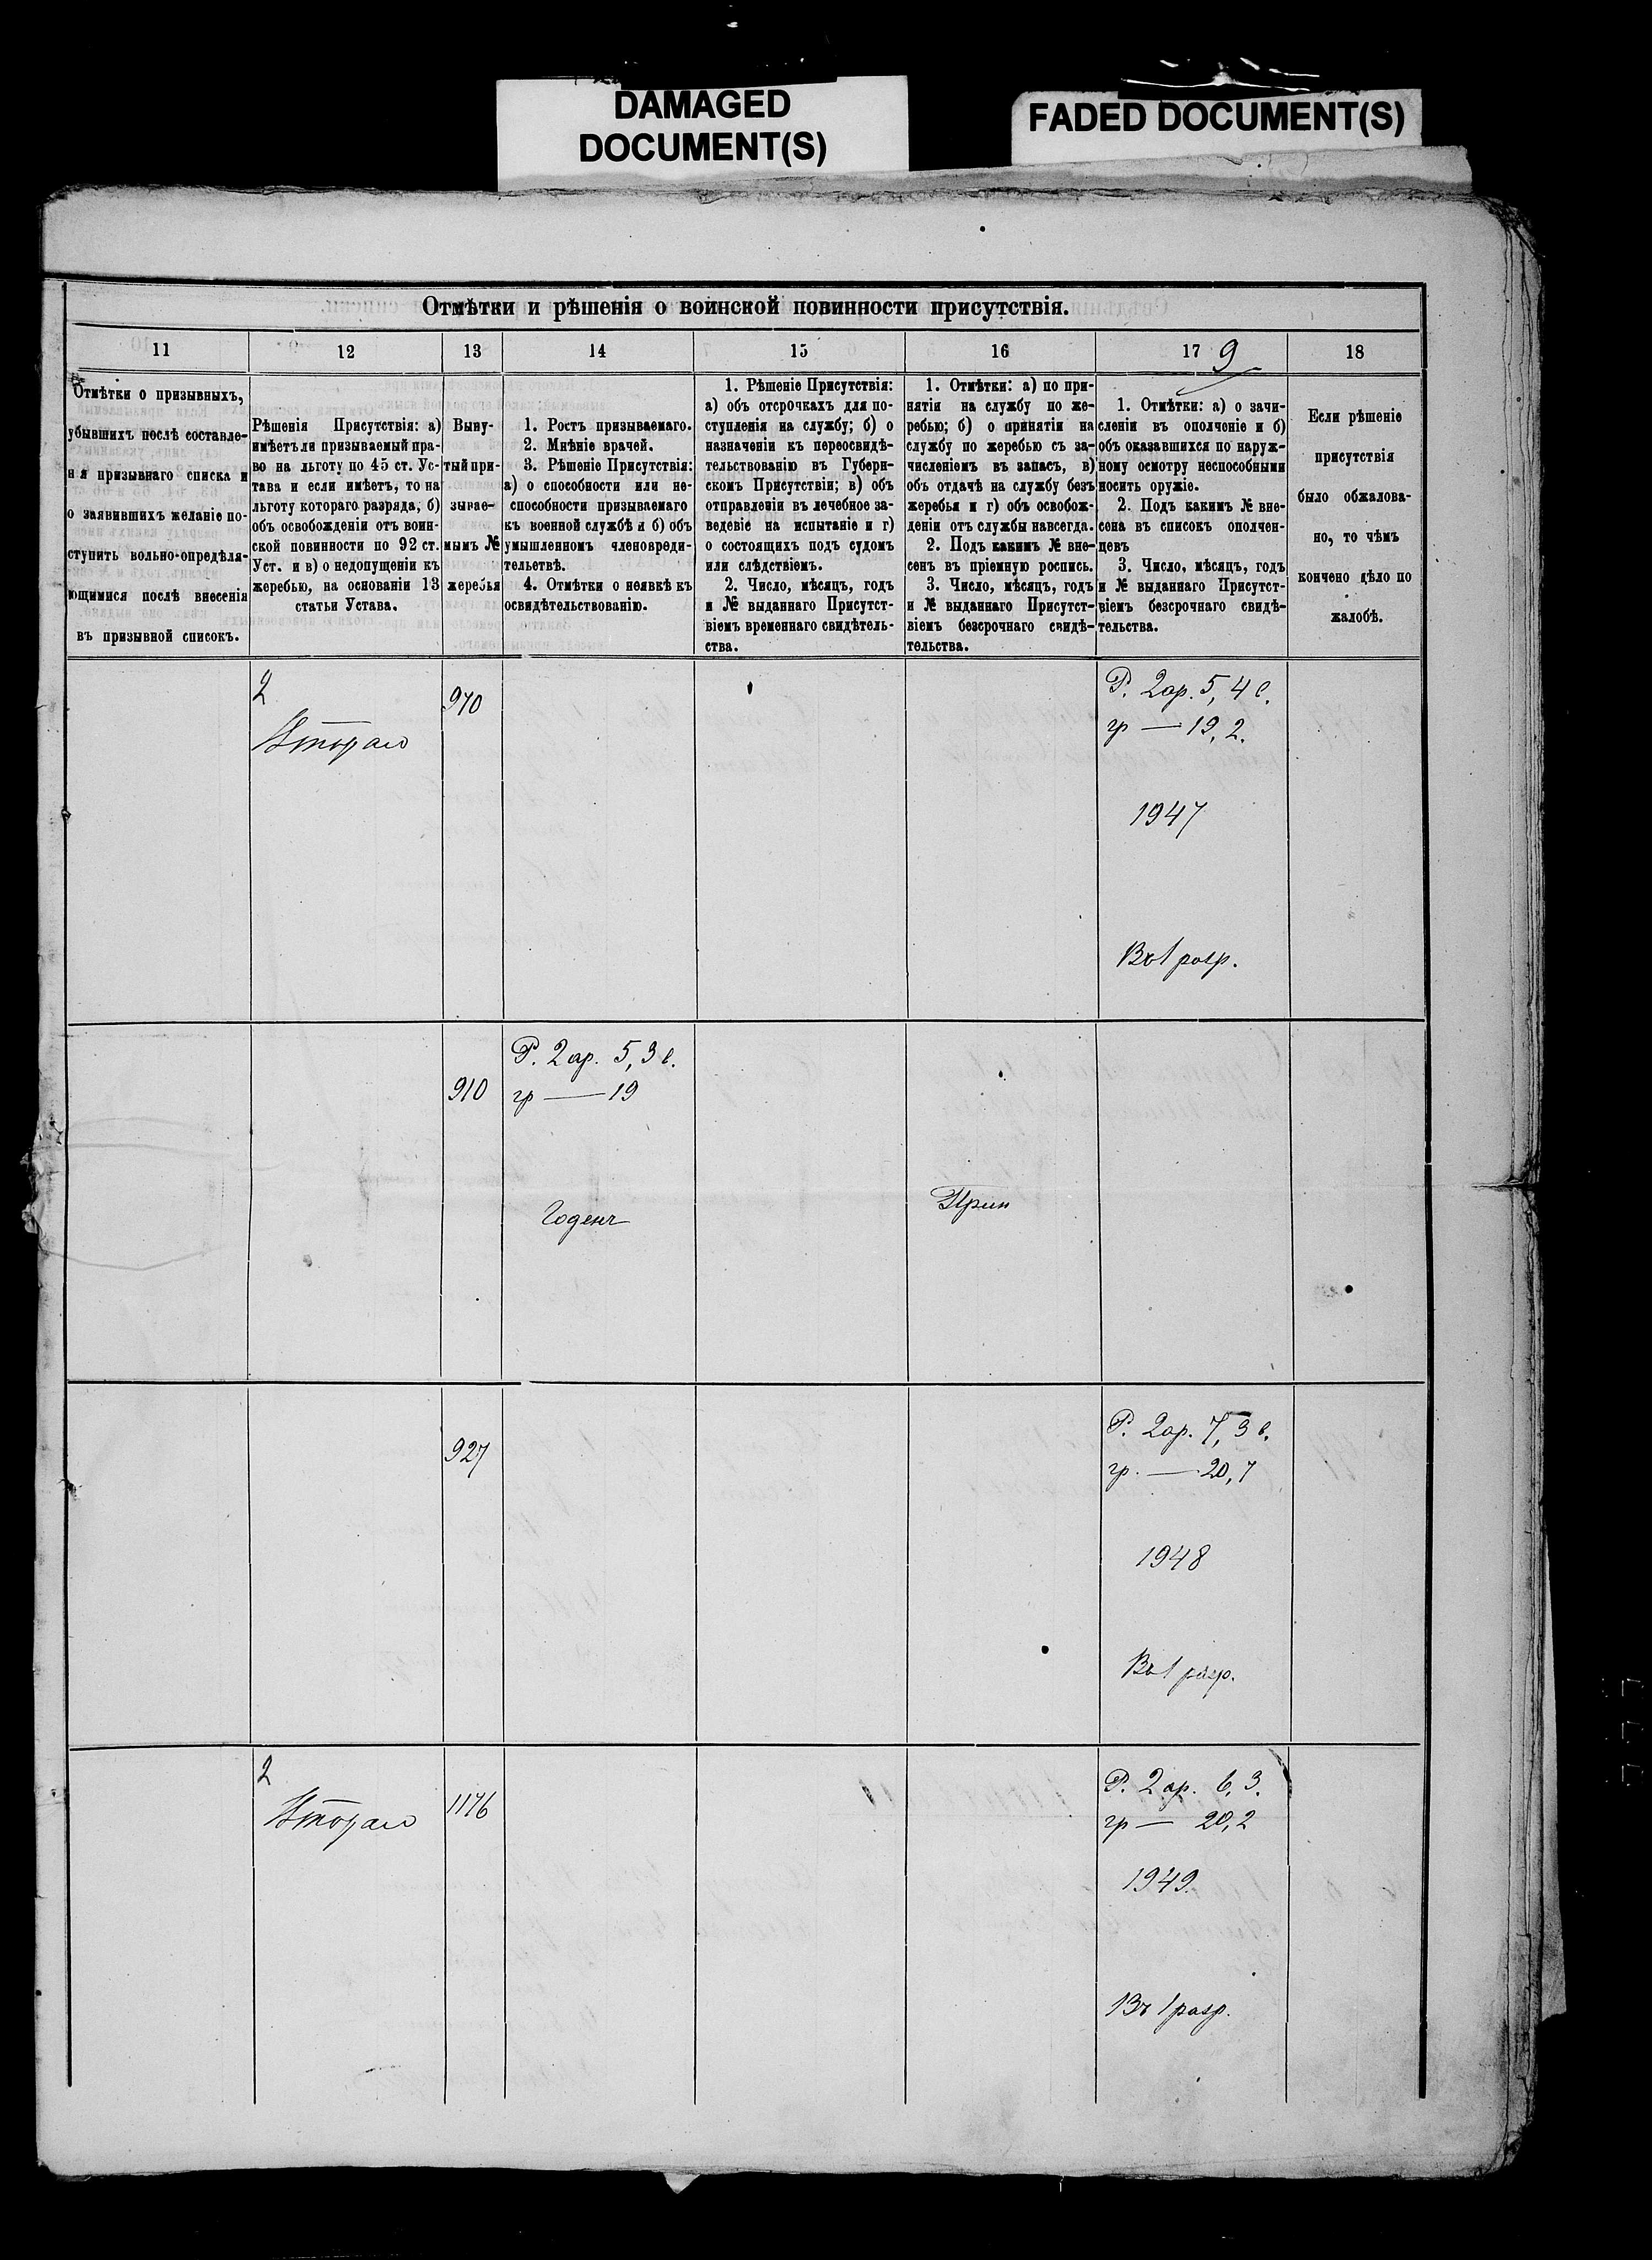 DAMAGED
DOCUMENT(S)
FADED DOCUMENT(S)
Отмѣтки и рѣшенія о воинской повинности присутствія.
11
12
13
14
15
16
17
9
18
Отмѣтки о призывныхъ,
убывшихъ послѣ составле-
нія призывнаго списка и
о заявившихъ желаніе по-
ступить вольно-опредѣля-
ющимися послѣ внесенія
въ призывной списокъ.
Рѣшенія Присутствія: а)
имѣетъ ли призываемый пра-
во на льготу по 45 ст. Ус-
тава и если имѣетъ, то на
льготу котораго разряда, б)
объ освобожденіи отъ воин-
ской повинности по 92 ст.
Уст. и в) о недопущеніи къ
жеребью, на основаніи 13
статьи Устава.
Выну-
тый при-
зывае-
мымъ №
жеребья
1. Ростъ призываемаго.
2. Мнѣніе врачей.
3. Рѣшеніе Присутствія:
а) о способности или не-
способности призываемаго
къ военной службѣ и б) объ
умышленномъ членовреди-
тельетвѣ.
4. Отмѣтки о неявкѣ къ
освидѣтельствованію.
1. Рѣшеніе Присутствія:
а) объ отсрочкахъ для по-
ступленія на службу; б) о
назначеніи къ переосвидѣ-
тельствованію въ Губерн-
скомъ Присутствіи; в) объ
отправленіи въ лечебное за-
веденіе на испытаніе и г)
о состоящихъ подъ судомъ
или слѣдствіемъ.
2. Число, мѣсяцъ, годъ
и № выданнаго Присутст-
віемъ временнаго свидѣтель-
ства.
1. Отмѣтки: а) по при-
нятіи на службу по же-
ребью; б) о принятіи на
службу по жеребью съ за-
численіемъ въ запасъ, в)
объ отдачѣ на службу безъ
жеребья и г) объ освобож-
деніи отъ службы навсегда.
2. Подъ какимъ № вне-
сенъ въ пріемную роспись.
3. Число, мѣсяцъ, годъ
и № выданнаго Присутст-
віемъ безсрочнаго свидѣ-
тельства.
1. Отмѣтки: а) о зачи-
сленіи въ ополченіе и б)
объ оказавшихся по наруж-
ному осмотру неспособными
носить оружіе.
2. Подъ какимъ № вне-
сена въ списокъ ополчен-
цевъ
3. Число, мѣсяцъ, годъ
и № выданнаго Присутст-
віемъ безсрочнаго свидѣ-
тельства.
Если рѣшеніе
присутствія
было обжалова-
но, то чѣмъ
кончено дѣло по
жалобѣ.
2
Втораго
970
Р. 2 ар. 5, 4 в.
гр — 19, 2.
1947
Въ 1 разр.
910
Р. 2 ар. 5, 3 в.
гр — 19
Годенъ
Прин
927
Р. 2 ар. 7, 3 в.
гр. — 20, 7
1948
Въ 1 разр.
2
Втораго
1176
Р. 2 ар. 6, 3.
гр — 20, 2
1949.
Въ 1 разр.